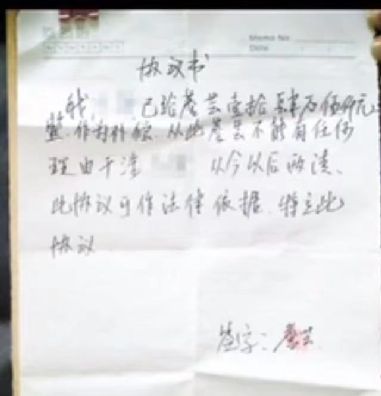 Memo No.
Date
协议书
我 已给詹芸壹拾肆万伍仟元
整.作为补偿.从此詹芸不能有任何
理由干涉 以今以后的生活、
此协议可作法律依据.特立此
协议
签字:詹芸